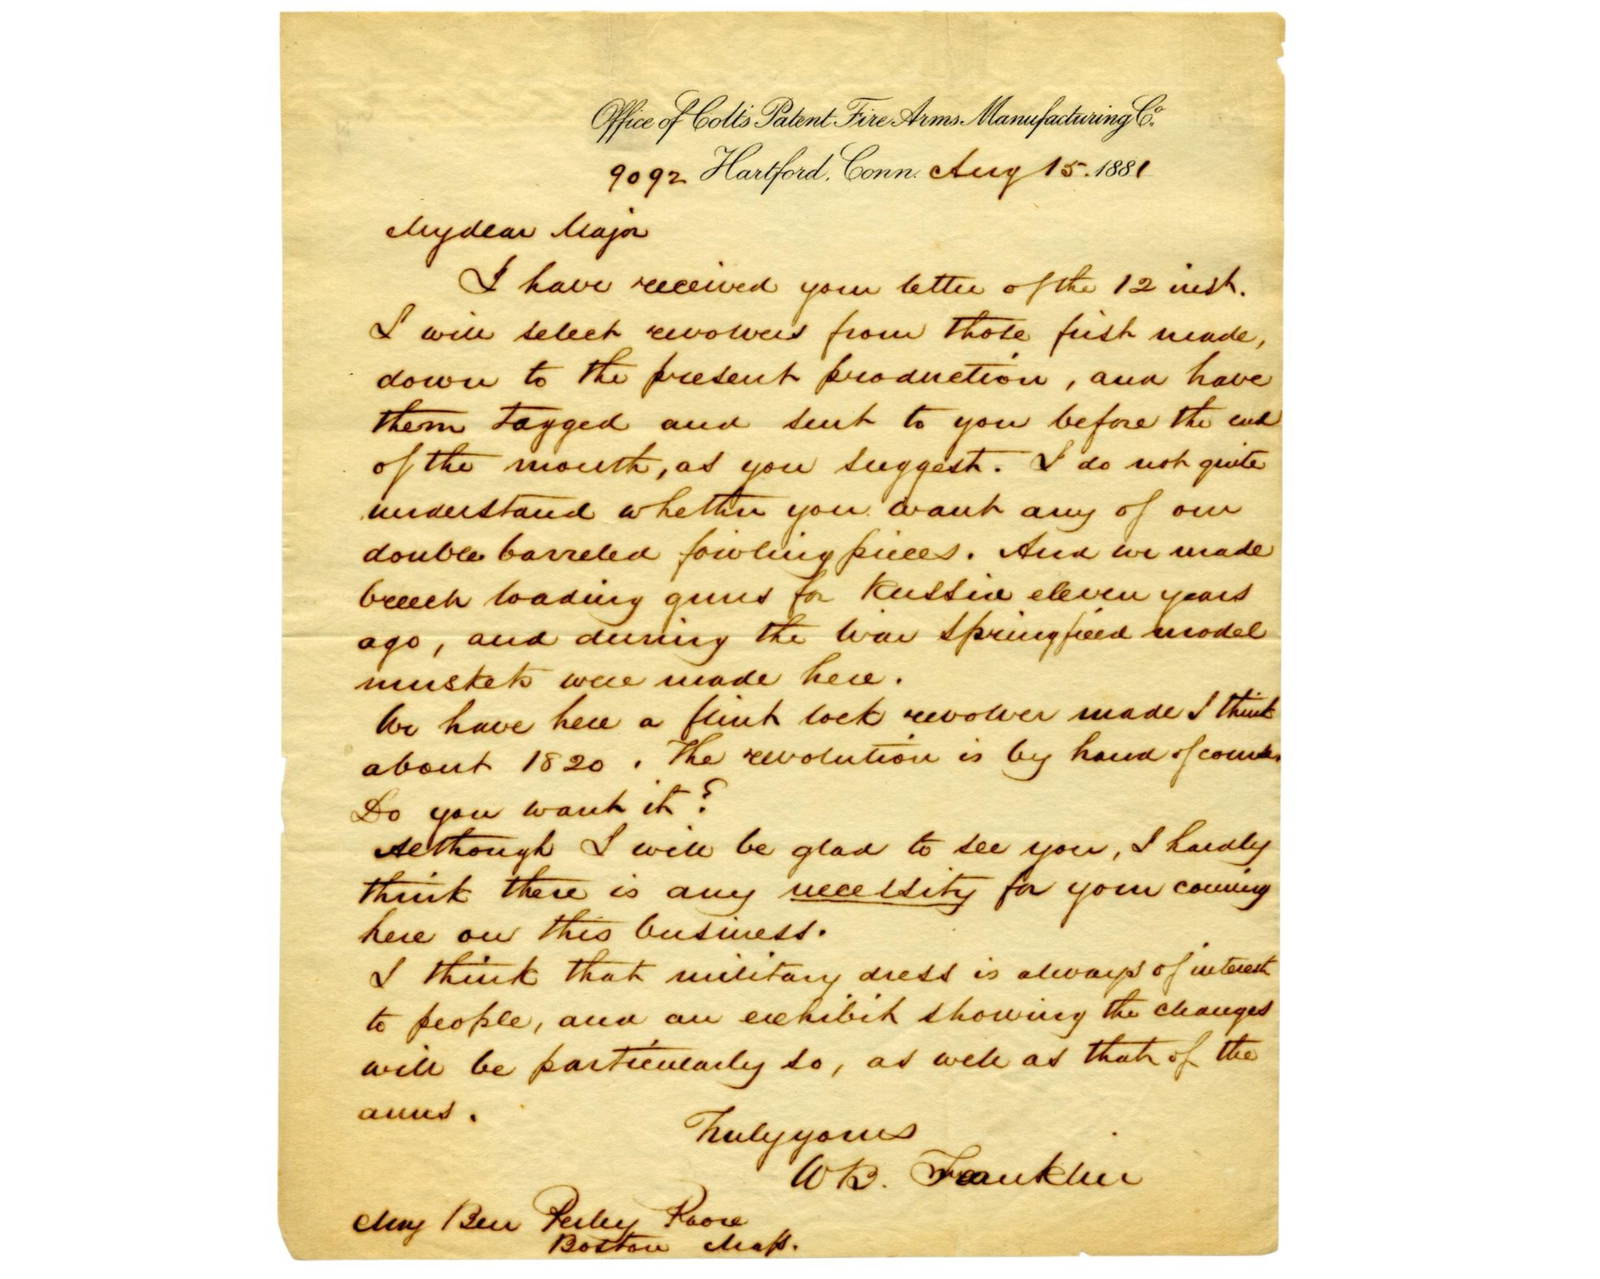 Office of Colt's Patent Fire Arms Manufacturing Co.
9092 Hartford, Conn. Aug 15. 1881
My dear Major
I have received your letter of the 12 inst.
I will select revolvers from those first made,
down to the present production, and have
them tagged and sent to you before the end
of the month, as you suggest. I do not quite
understand whether you want any of our
double barreled fowling pieces. And we made
breech loading guns for Russia eleven years
ago, and during the war Springfield model
muskets were made here.
We have here a flint lock revolver made I think
about 1820. The revolution is by hand of course.
Do you want it?
Although I will be glad to see you, I hardly
think there is any necessity for your coming
here on this business.
I think that military dress is always of interest
to people, and an exhibit showing the changes
will be particularly so, as well as that of the
arms.
Truly yours
W B. Franklin
Maj Ben Perley Poore
Boston Mass.